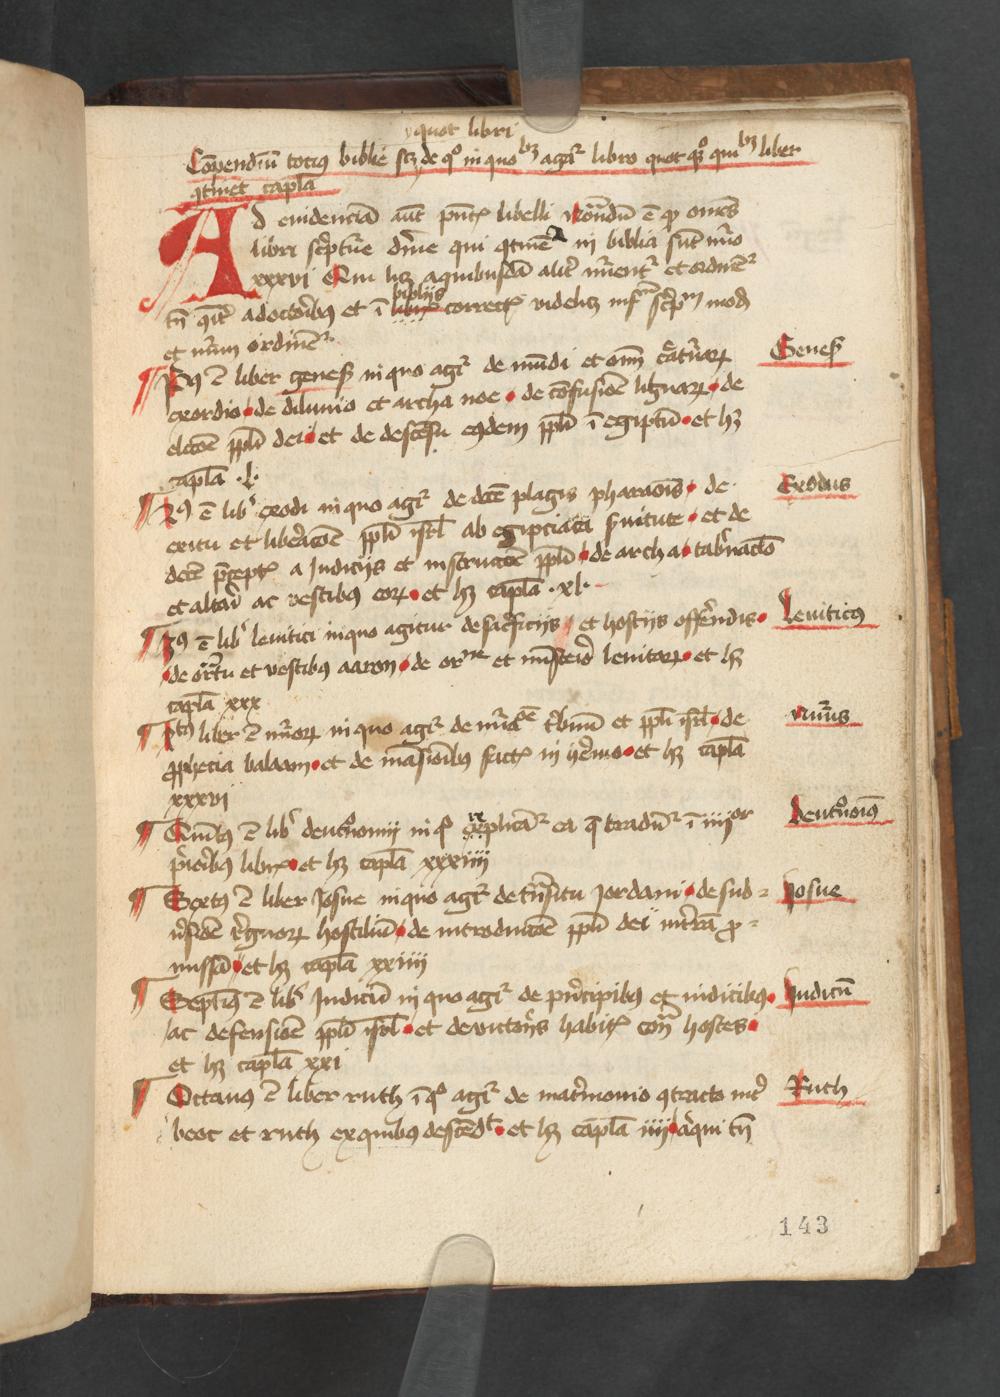 quot libri
Co̅pendiu̅ toci9 biblie scz de qo in quobz agit᷑ libro quot qo quibz liber
9tinet capl̅a
Ad euidencia̅ aut̅ pn̅tꝭ libelli nota̅du̅ e̅ qꝫ om̅es
libri sc̅pture di̅ne qui 9tinet᷑ in biblia su̅t nu̅o
xxxvi Qui lꝫ a quibusda̅ alit̅ nu̅ent᷑ et ordine̅t᷑
tn̅ a doctoribꝫ et i̅ bibliis correctꝭ videlicꝫ infra sc̅pto modo
et nu̅m ordine̅t᷑
P9 e̅ liber genes̅ in quo agit᷑ de mu̅di et om̅i c̅atu̅aꝝ
exordio · de diluuio et archa noe · de co̅fusio̅e li̅gwaꝝ · de
elc̅o̅e ppl̅i dei · et de desce̅su eiꝰdem ppl̅i i̅ egiptu̅ · et hꝫ
capl̅a · l ·
2us e̅ lib̅ exodi in quo agit᷑ de dece̅ plagis pharao̅is · de
exitu et liberac̅o̅e ppl̅i isrl̅ ab egipciaca s̅uitute · et de
dece̅ p̅ceptꝭ a Judicijs et instructo̅e ppl̅i · de archa · tab̅nac̅lo
et altari ac vestibus eoꝝ · et hꝫ capl̅a · xl ·
3us e̅ lib̅ leuitici in quo agitur de sac̅ficijs et hostijs offerendis ·
de ortu et vestibus aaron · de or̅ne et mi̅sterio leuitaꝝ · et hꝫ
capl̅a xxx
4tus liber e̅ nu̅oꝝ in quo agit᷑ de nu̅ac̅o̅e t̅buu̅ et ppl̅i isrl̅ · de
ꝓphecia balaam · et de ma̅sionibꝫ factꝭ in h̅emo · et hꝫ capl̅a
xxxvi
Quintꝰ e̅ lib̅ deut̅onomij in qo replicat᷑ ea q̅ tradu̅t᷑ i̅ iiijor
p̅oribus librꝭ · et hꝫ capl̅a xxxiiij
Sextꝰ e̅ liber Josue in quo agit᷑ de tra̅situ Jordani · de sub=
u̅sio̅e regnoꝝ hostiliu̅ · de introductio̅e ppl̅i dei in t̅ra̅ pro=
missa̅ · et hꝫ capl̅a xxiiij
Septimꝰ e̅ lib̅ Judicu̅ in quo agit᷑ de pri̅cipibus et iudicibus ·
ac defensio̅e ppl̅i isrl̅ · et de victorijs habitꝭ co̅tra hostes ·
et hꝫ capl̅a xxi
Octauus e̅ liber ruth i̅ qo agit᷑ de mat̅monio 9tracto int̅
booz et ruth ex quibus desce̅dit · et hꝫ capl̅a iiij
Genes̅
Exodus
Leuiticus
Nu̅us
Deut̅onoiu̅
Josue
Judicu̅
Ruth
143